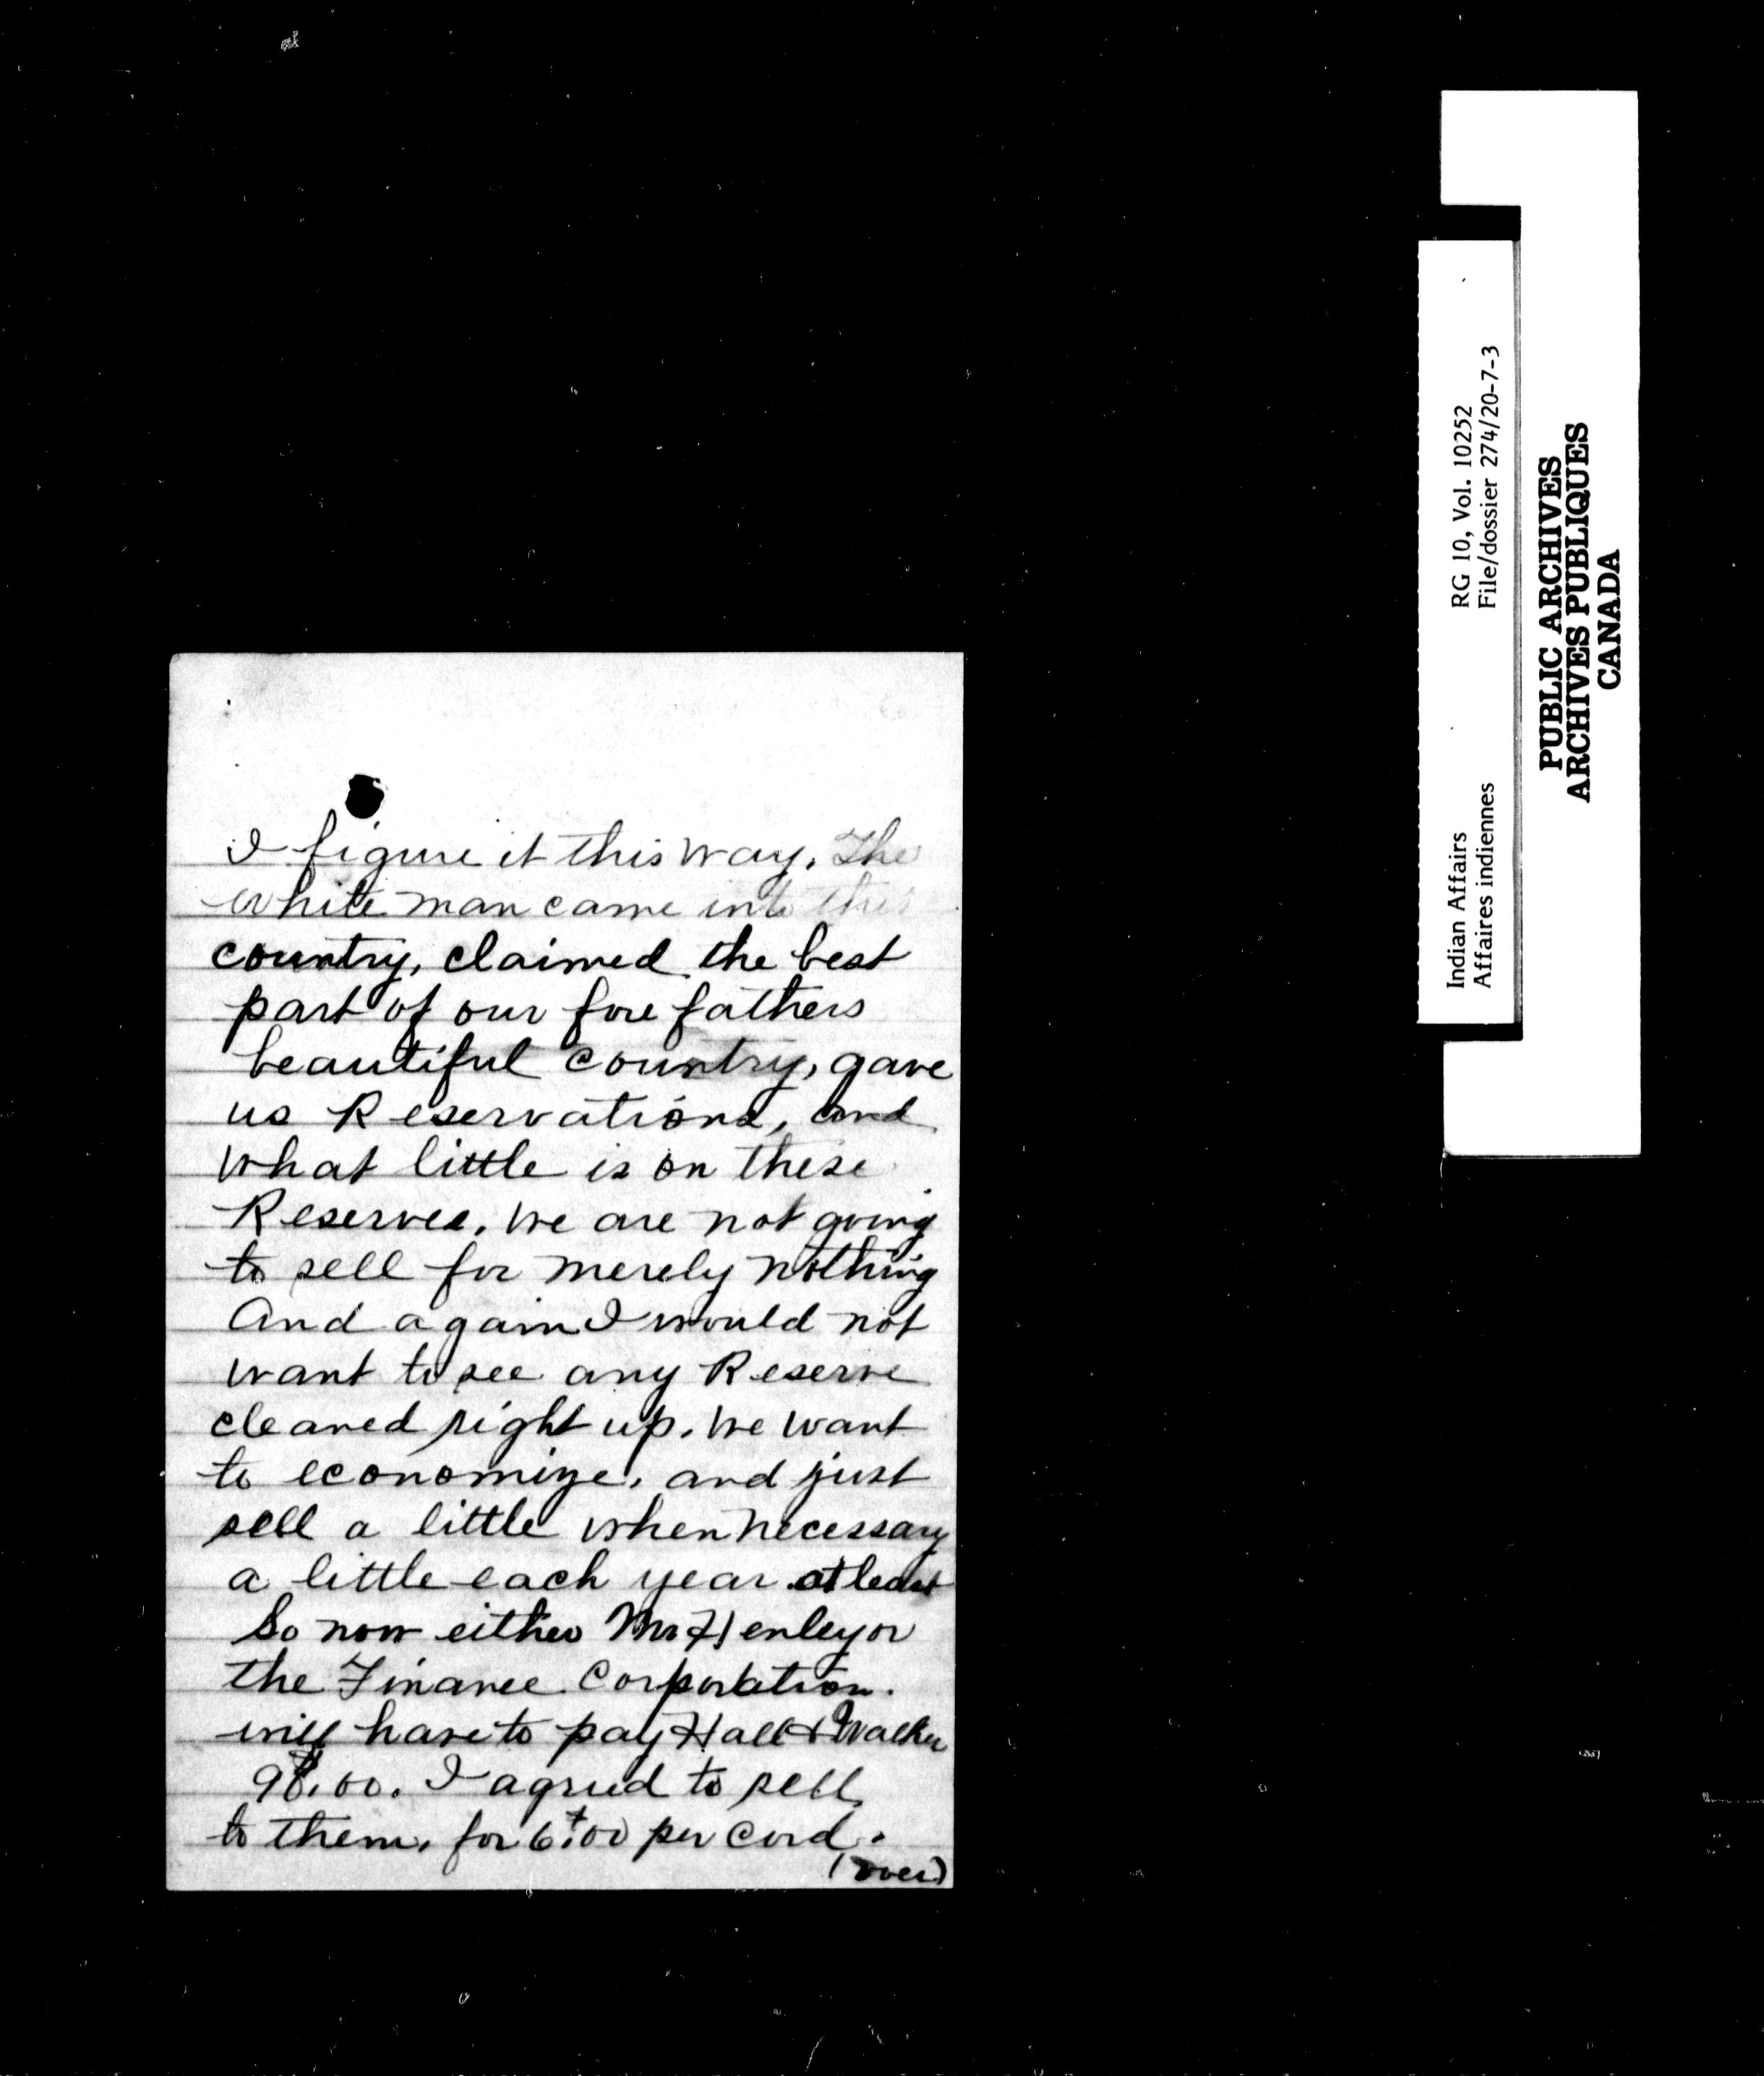 I figure it this way, The
white man came into this
country, claimed the best
part of our fore fathers
beautiful country, gave
us Reservations, and
what little is on these
Reserves, we are not going
to sell for merely nothing
And again I would not
want to see any Reserve
cleaned right up. We want
to economize, and just
sell a little when necessary
a little each year at least
So now either Mr Henley or
the Finance Corporation.
will have to pay Hall & Walker
$ I agreed to sell
to them, for 6$00 per cord.
(over)
Indian Affairs RG 10, Vol. 10252
Affaires indiennes File/dossier 274/20-7-3
PUBLIC ARCHIVES
ARCHIVES PUBLIQUES
CANADA